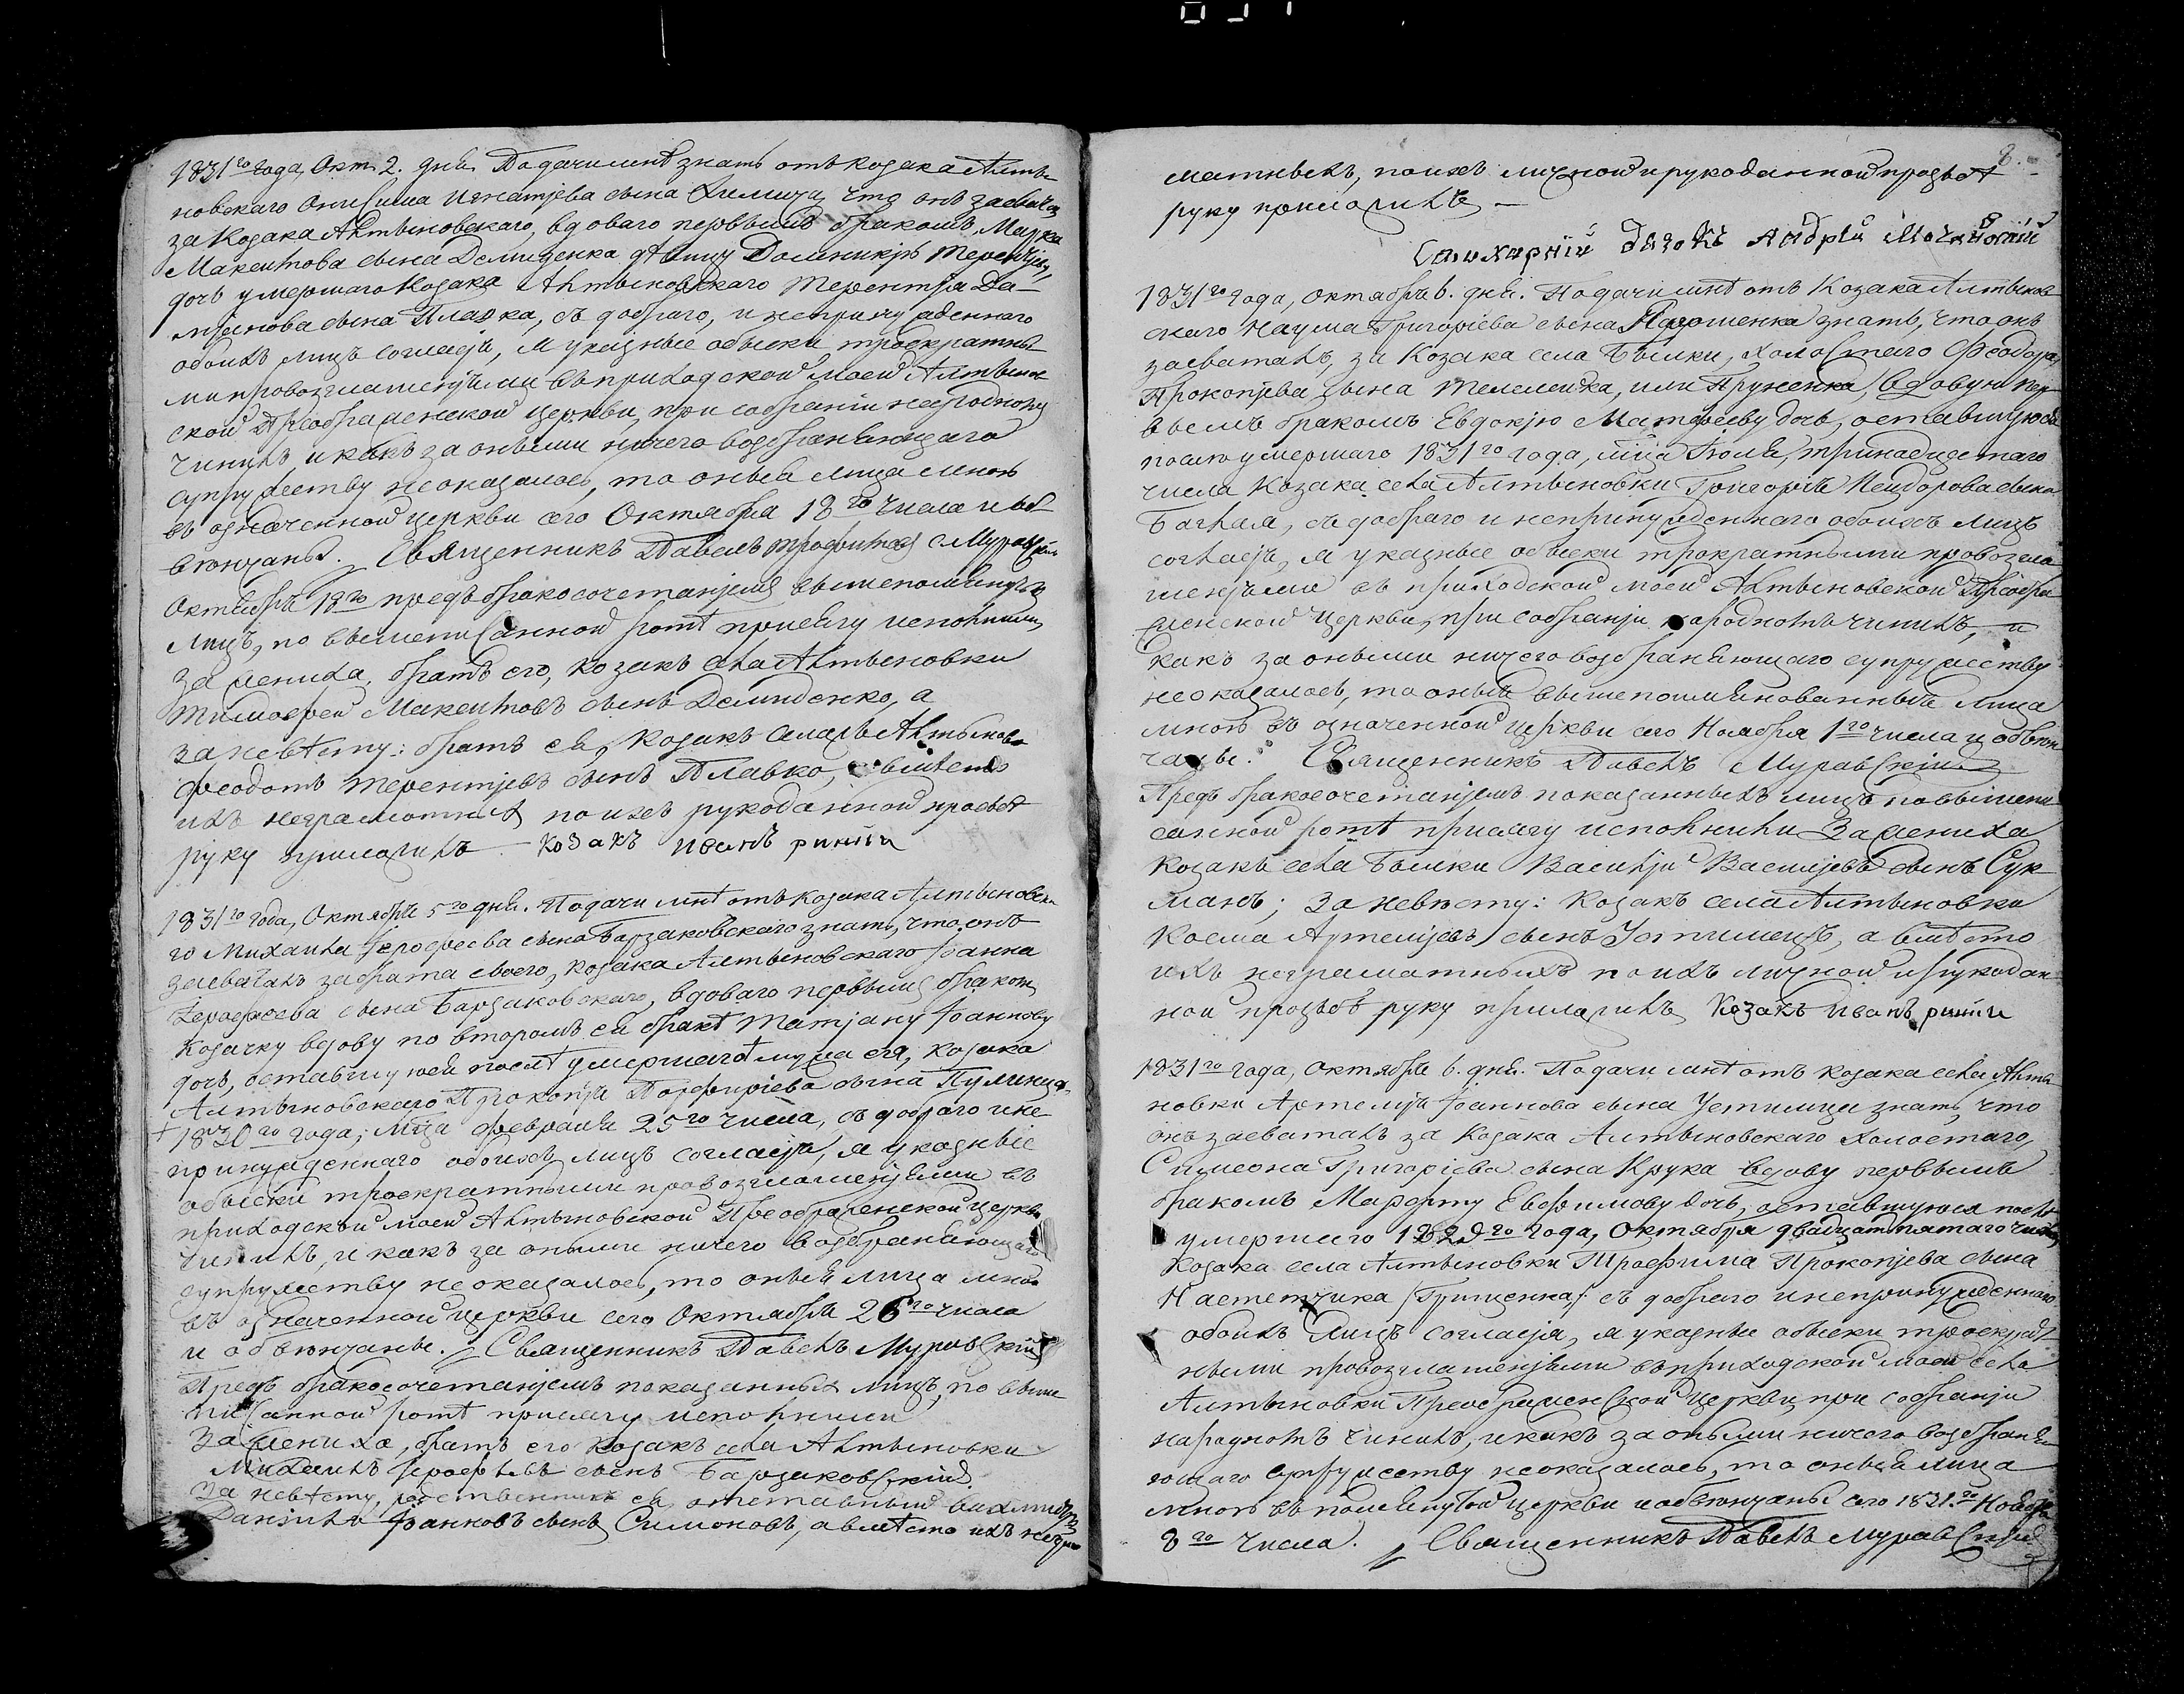 1831го года, Окт. 2. дня. Подачи мнѣ знать отъ козака Алты-
новскаго Онисима Игнатјева сына что онъ засватал
за Козака Алтыновскаго, вдоваго первымъ бракомъ, Марка
Макситова сына Демиденка дѣвицу Домникїю Терентїеву,
дочь умершаго Козака Алтыновскаго Терентїя Да-
мїянова сына Плавка, съ добраго, и непринужденнаго
обоихъ лицъ согласїя, я указные обыски троекратны-
ми провозглашенїями въ приходской моей Алтынов-
ской Преображенской церкви, при собранїи народному
чинилъ, и какъ за оными ничего возбраняющаго
супружеству неоказалось, то оныя лица мною
въ означенной церкви сего Октября 18го числа и об-
вѣнчаны. Священникъ Павелъ Муравскїй
Октября 18го предъ бракосочетанјемъ вышепомянутых
лицъ, по вышеписанной ротѣ присягу исполнили,
за жениха, братъ его, козакъ села Алтыновки
Тимофей Макситовъ сынъ Демиденко, а
за невѣсту: братъ ея, козакъ села Алтыновки
Феодотъ Терентјевъ сынъ Плавко, вмѣсто
ихъ неграмотных по ихъ рукоданной прозьбѣ
руку приложилъ – козакъ иванъ
1831го года, Октября 5го дня. Подачи мнѣ отъ козака Алтыновска-
го Михаила Їерофеева сына Барзаковскаго знать, что онъ
засваталъ за брата своего, козака Алтыновскаго Їоанна
Їерофеева сына Барзаковскаго, вдоваго первымъ бракомъ,
козачку вдову по второмъ ея бракѣ Татјану Їоаннову
дочь, оставшуюся послѣ умершаго мужа ея, козака
Алтыновскаго Прокопїя Порфирїева сына
1830го года, мца февраля 25го числа, съ добраго и не-
принужденнаго обоихъ лицъ согласїя, я указные
обыски троекратными провозглашенјями въ
приходской моей Алтыновской Преображенской церкви
чинилъ, и какъ за оными ничего возбраняющаго
супружеству неоказалось, то оныя лица мною
въ означенной церкви сего Октября 26го числа
и обвѣнчаны. Священникъ Павелъ Муравскїй
Предъ бракосочетанјемъ показанных лицъ, по выше
писанной ротѣ присягу исполнили
За жениха, братъ его козакъ села Алтыновки
Михаилъ Їерофеевъ сынъ Барзаковскїй.
За невѣсту, родственникъ ея, отставный
Данїилъ Їоанновъ сынъ Симоновъ, а вмѣсто ихъ негра-
8.
матныхъ, по ихъ личной и рукоданной прозьбѣ
руку приложилъ –
8
дячокъ Андрей
1831го года, Октября 6. дня. Подачи мнѣ отъ Козака Алтынов-
скаго Наума Григорїева сына знать, что онъ
засваталъ, за Козака села Былки, холостаго Феодора
Прокопјева сына или вдовую пер-
вымъ бракомъ Евдокјю Матфееву дочь, оставшуюся
послѣ умершаго 1831го года, мца Їюля, тринадцетаго
числа Козака села Алтыновки Григорїя сына
съ добраго и непринужденнаго обоихъ лицъ
согласїя, я указные обыски трократными провозгла-
шенјями въ приходской моей Алтыновской Преобра-
женской церкви, при собранји народномъ чинилъ, и
какъ за оными ничего возбраняющаго супружеству
неоказалось, то оныя вышепомянованныя лица
мною въ означенной церкви сего Ноября 1го числа и обвѣн-
чаны. Священникъ Павелъ Муравскїй
Предъ бракосочетанјемъ показанныхъ лицъ по вышепи-
санной ротѣ присягу исполнили За жениха
козакъ села Былки Василїй Васильевъ сынъ Сук-
манъ; За невѣсту: козакъ села Алтыновки
Косма Артемјевъ сынъ Устимецъ, а вмѣсто
ихъ неграматныхъ по ихъ личной и рукодан-
ной прозьбѣ руку приложилъ козакъ иванъ
1831го года, Октября 6. дня. Подачи мнѣ отъ козака села Алты-
новки Артемїя Їоаннова сына Устимца знать, что
онъ засваталъ за Козака Алтыновскаго холостаго,
Симеона Григорїева сына Крука вдову первымъ
бракомъ Марфту Евфимову дочь, оставшуюся послѣ
умершаго года, Октября двадцатпятаго числа
козака села Алтыновки Трофима Прокопјева сына
/Грищенка,/ съ добраго и непринужденнаго
обоихъ Лицъ согласїя, я указные обыски троекрат-
ными провозглашенјями въ приходской моей села
Алтыновки Преображенской церкви, при собранји
народномъ чинилъ, и какъ за оными ничего возбраня-
ющаго супружеству неоказалось, то оныя лица
мною въ помянутой церкви и обвѣнчаны сего 1831го Ноября
8го числа. Священникъ Павелъ Муравскїй